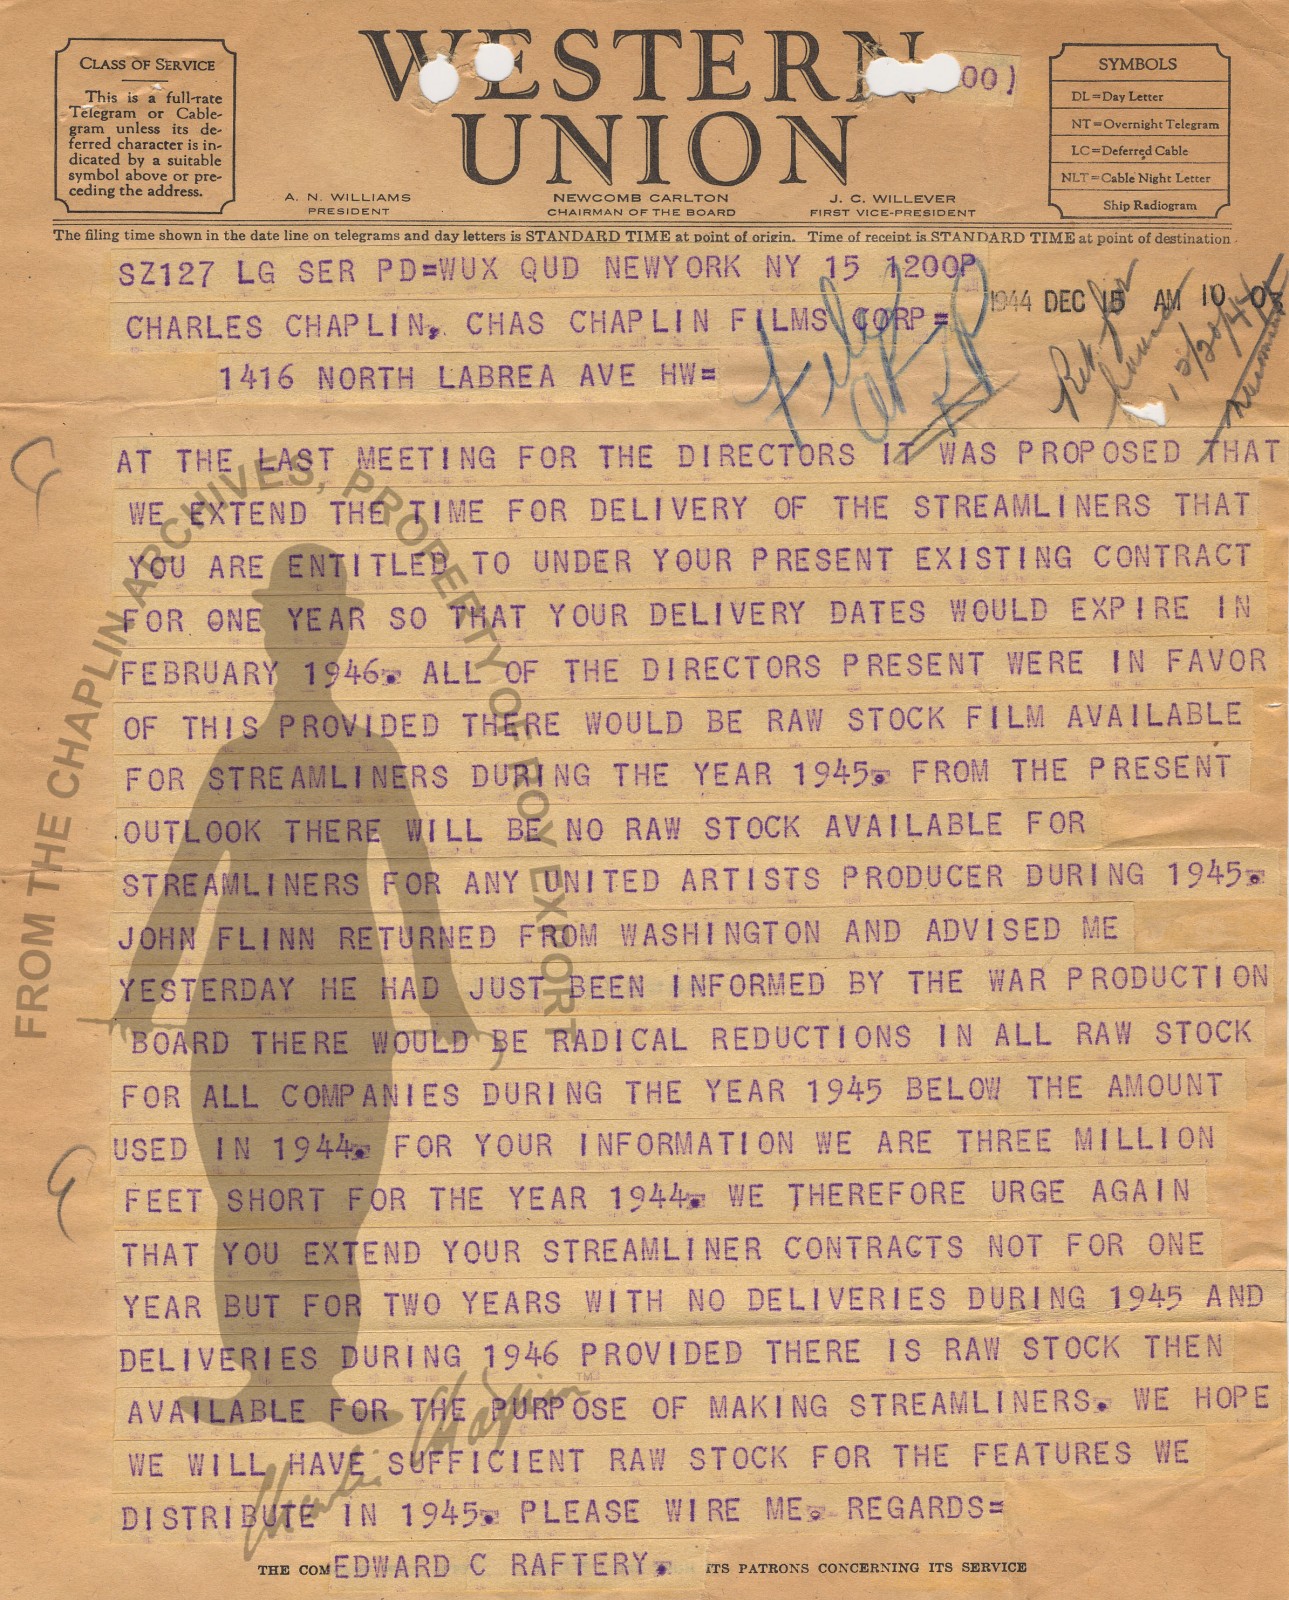 CLASS OF SERVICE
This is a full-rate
Telegram or Cable-
gram unless its de-
ferred character is in-
dicated by a suitable
symbol above or pre-
ceding the address.
WESTERN
UNION
00)
A. N. WILLIAMS
PRESIDENT
NEWCOMB CARLTON
CHAIRMAN OF THE BOARD
J. C. WILLEVER
FIRST VICE-PRESIDENT
SYMBOLS
DL=Day Letter
NT=Overnight Telegram
LC=Deferred Cable
NLT=Cable Night Letter
Ship Radiogram
The filing time shown in the date line on telegrams and day letters is STANDARD TIME at point of origin. Time of receipt is STANDARD TIME at point of destination
SZ127 LG SER PD=WUX QUD NEWYORK NY 15 1200P
1944 DEC 15 AM 10 0
CHARLES CHAPLIN, CHAS CHAPLIN FILMS CORP=
1416 NORTH LABREA AVE HW=
File
OK
12/20/44
AT THE LAST MEETING FOR THE DIRECTORS IT WAS PROPOSED THAT
WE EXTEND THE TIME FOR DELIVERY OF THE STREAMLINERS THAT
YOU ARE ENTITLED TO UNDER YOUR PRESENT EXISTING CONTRACT
FOR ONE YEAR SO THAT YOUR DELIVERY DATES WOULD EXPIRE IN
FEBRUARY 1946. ALL OF THE DIRECTORS PRESENT WERE IN FAVOR
OF THIS PROVIDED THERE WOULD BE RAW STOCK FILM AVAILABLE
FOR STREAMLINERS DURING THE YEAR 1945. FROM THE PRESENT
OUTLOOK THERE WILL BE NO RAW STOCK AVAILABLE FOR
STREAMLINERS FOR ANY UNITED ARTISTS PRODUCER DURING 1945.
JOHN FLINN RETURNED FROM WASHINGTON AND ADVISED ME
YESTERDAY HE HAD JUST BEEN INFORMED BY THE WAR PRODUCTION
BOARD THERE WOULD BE RADICAL REDUCTIONS IN ALL RAW STOCK
FOR ALL COMPANIES DURING THE YEAR 1945 BELOW THE AMOUNT
USED IN 1944. FOR YOUR INFORMATION WE ARE THREE MILLION
FEET SHORT FOR THE YEAR 1944. WE THEREFORE URGE AGAIN
THAT YOU EXTEND YOUR STREAMLINER CONTRACTS NOT FOR ONE
YEAR BUT FOR TWO YEARS WITH NO DELIVERIES DURING 1945 AND
DELIVERIES DURING 1946 PROVIDED THERE IS RAW STOCK THEN
AVAILABLE FOR THE PURPOSE OF MAKING STREAMLINERS. WE HOPE
WE WILL HAVE SUFFICIENT RAW STOCK FOR THE FEATURES WE
DISTRIBUTE IN 1945. PLEASE WIRE ME. REGARDS=
EDWARD C RAFTERY.
THE COM
ITS PATRONS CONCERNING ITS SERVICE
FROM THE CHAPLIN ARCHIVES, PROPERTY OF ROY EXPORT
Charlie Chaplin™